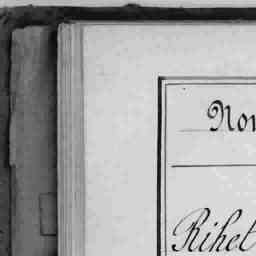 Nom
Rihet